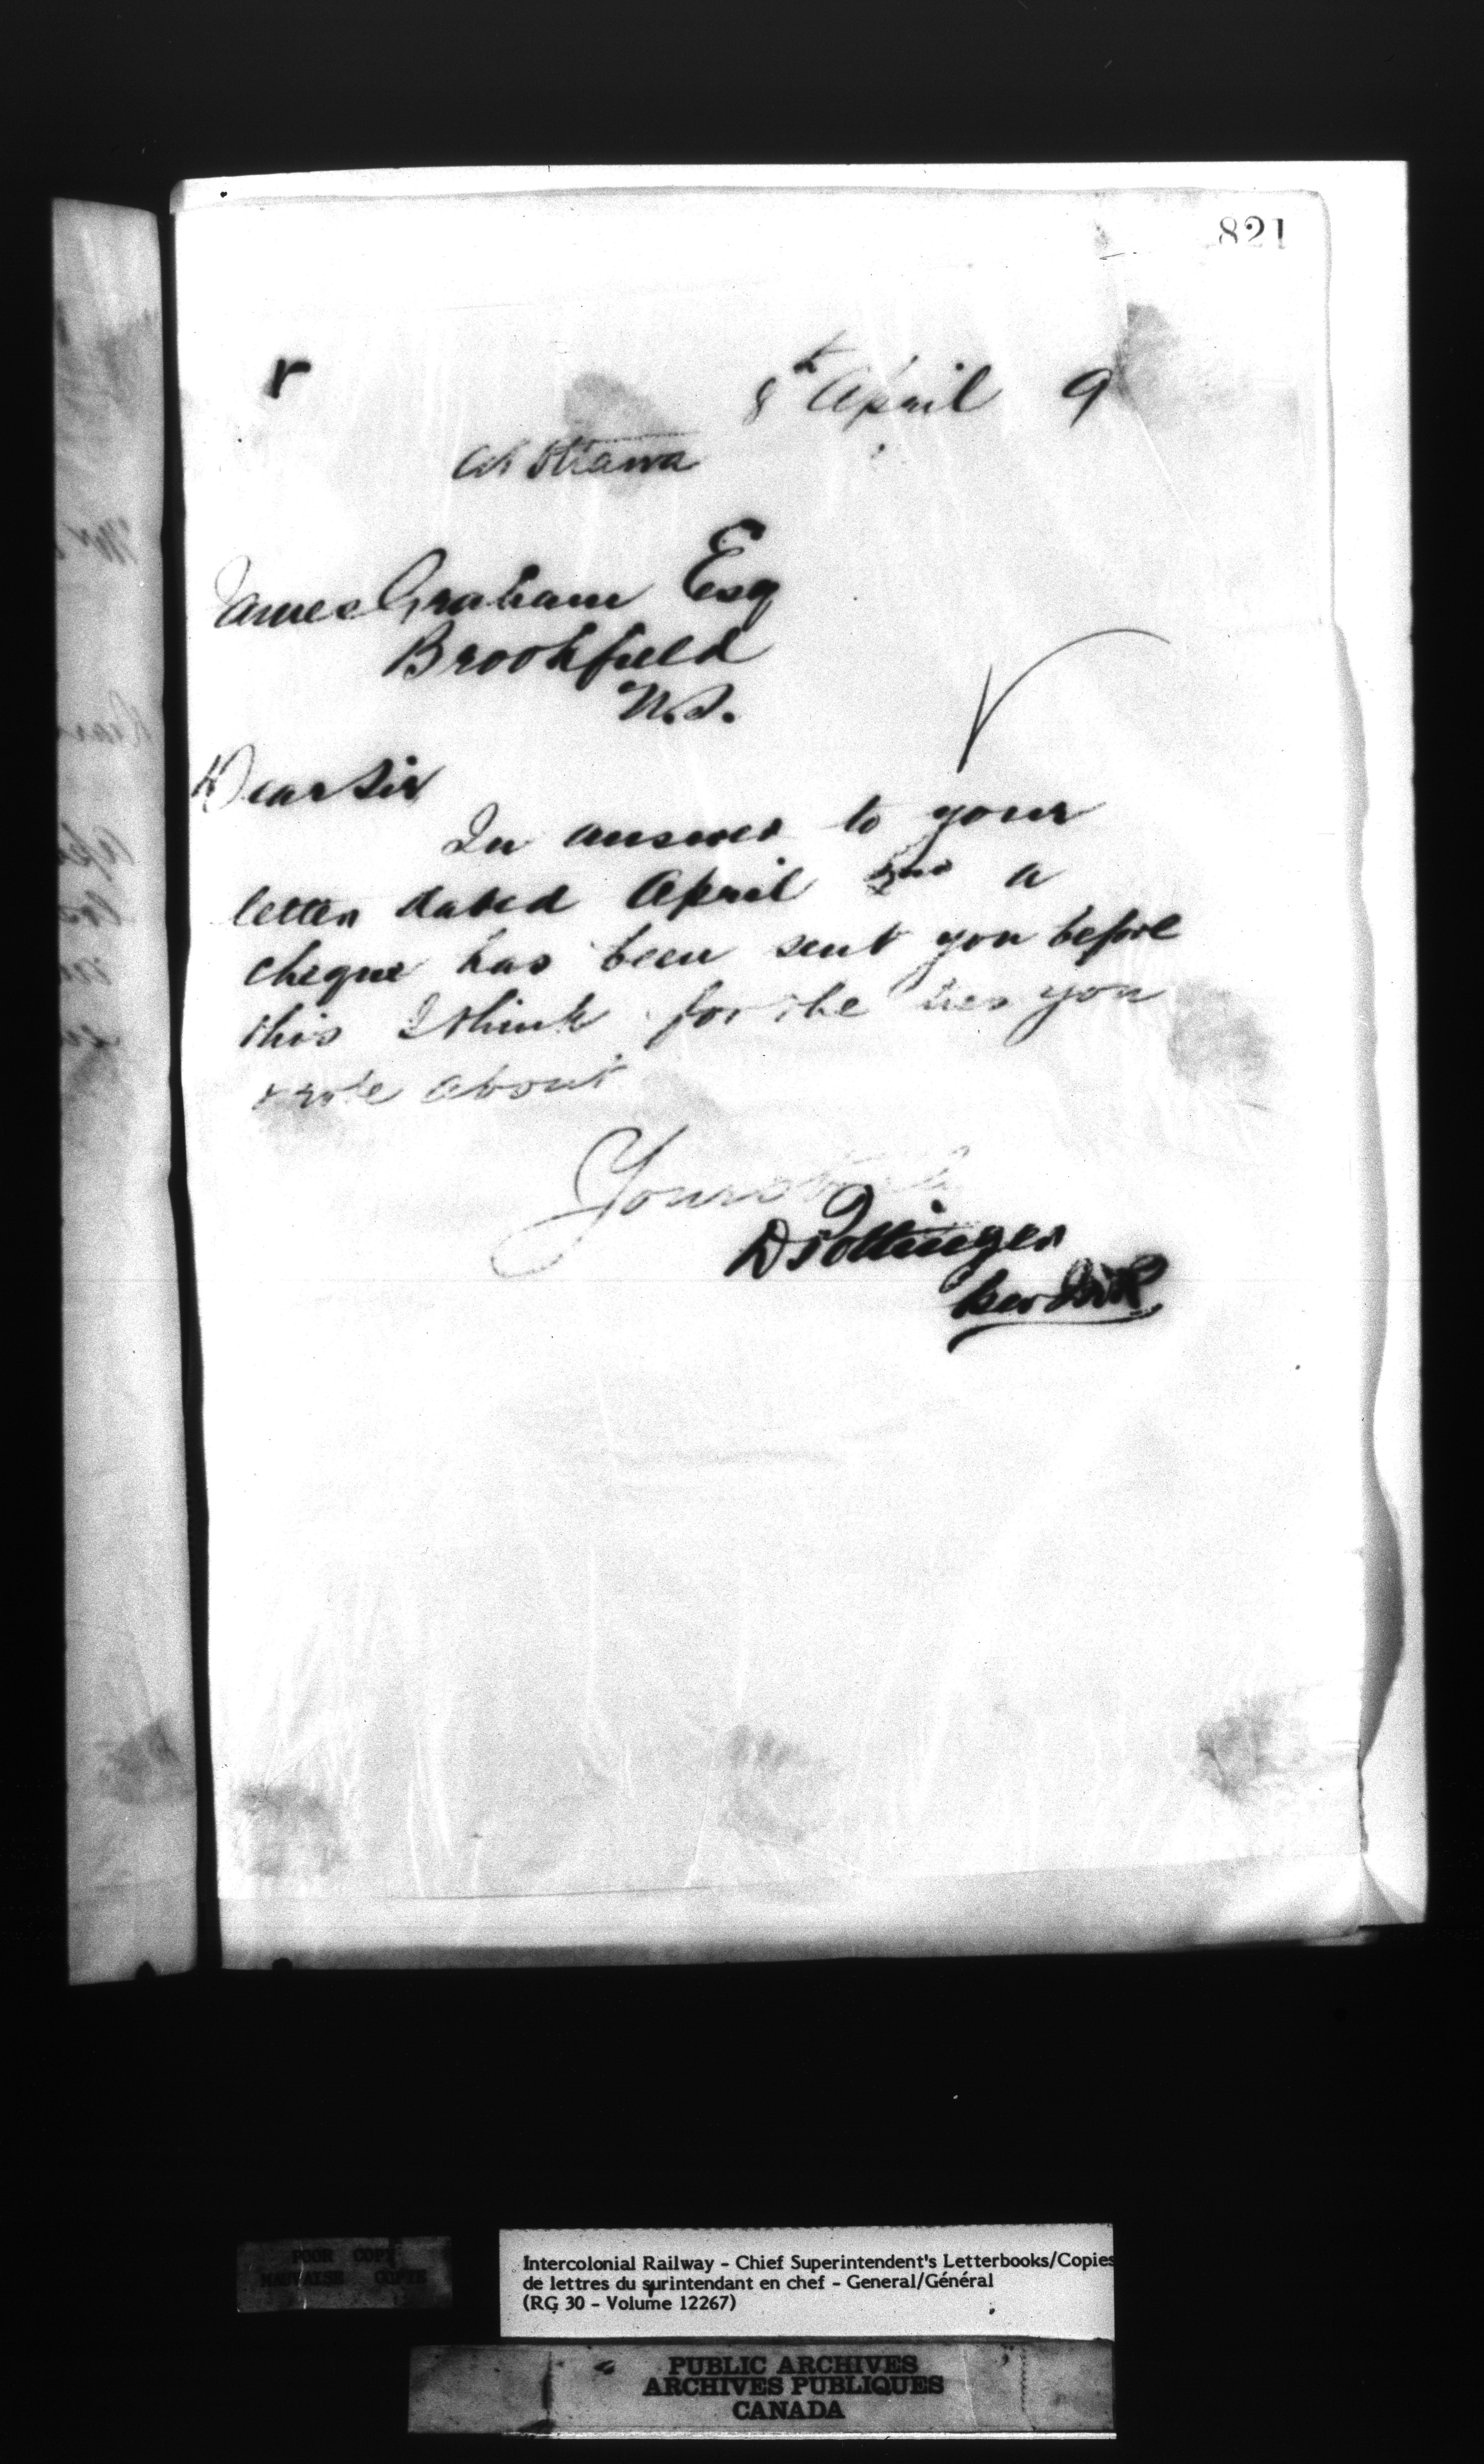 821
r
8th April 9
At Ottawa
James Graham Esq
Brookfield
N.S.
Dear Sir
In answer to your
letter dated April 2nd a
cheque has been sent you before
this I think for the ties you
wrote about
Yours truly
D Pottinger
per
POOR COPY
MAUVAISE COPIE
Intercolonial Railway - Chief Superintendent's Letterbooks/Copies
de lettres du surintendant en chef - General/Général
(RG 30 - Volume 12267)
PUBLIC ARCHIVES
ARCHIVES PUBLIQUES
CANADA